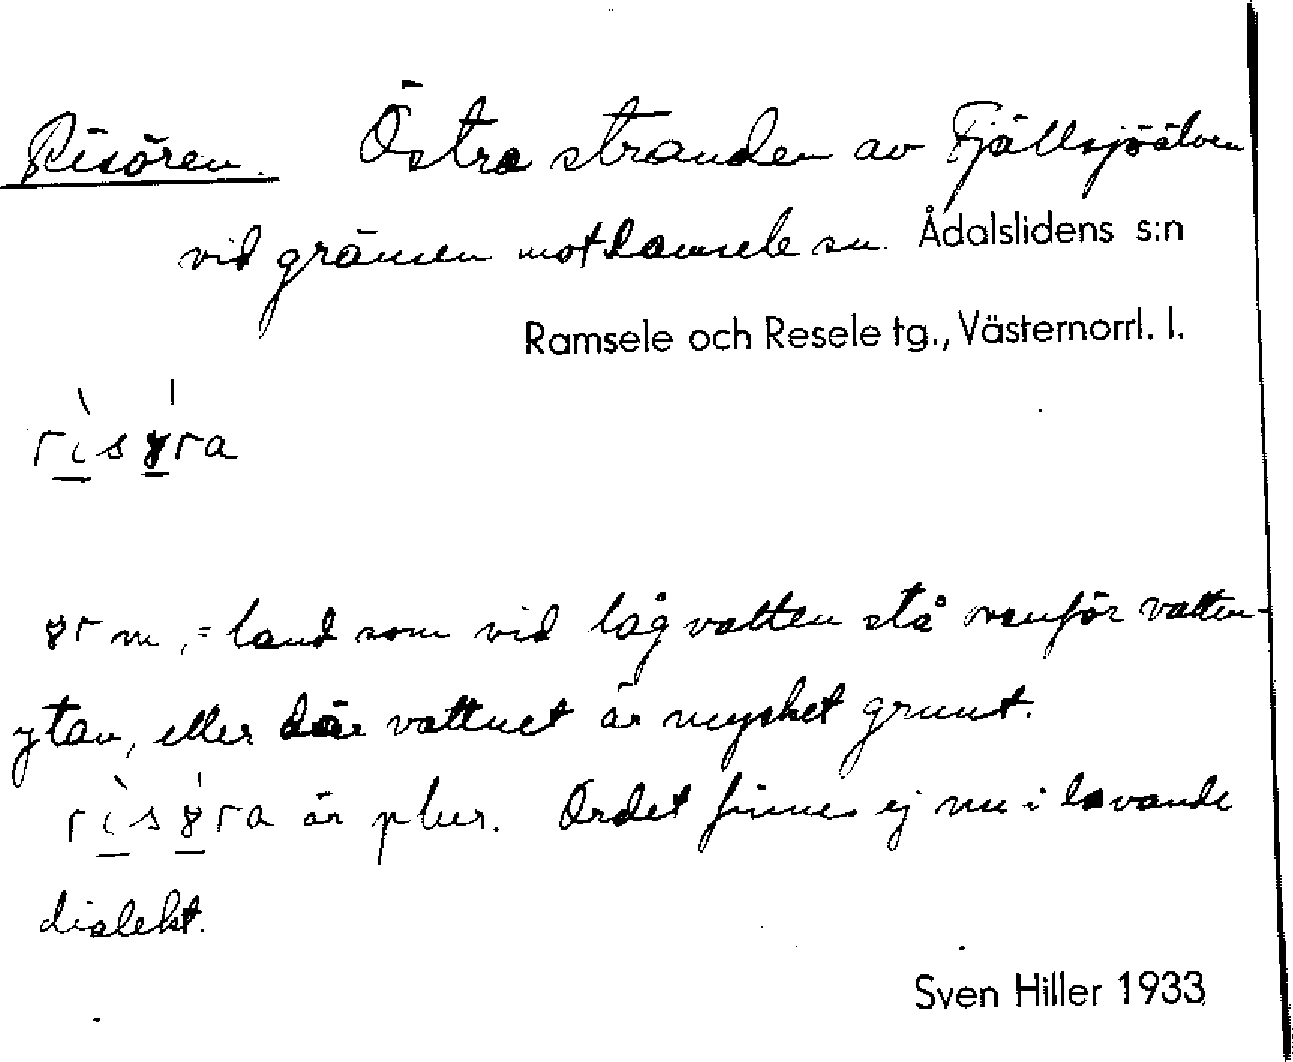 Risören. Östra stranden av Fjällsjöälven
vid gränsen mot Ramsele sn. Ådalslidens s:n
Ramsele och Resele tg., Västernorrl. l.
risɤra
ɤr m, = land som vid låg vatten stå ovanför vatten-
ytan, eller där vattnet är mycket grunt.
risɤra är plur. Ordet finnes ej nu i levande
dialekt.
Sven Hiller 1933